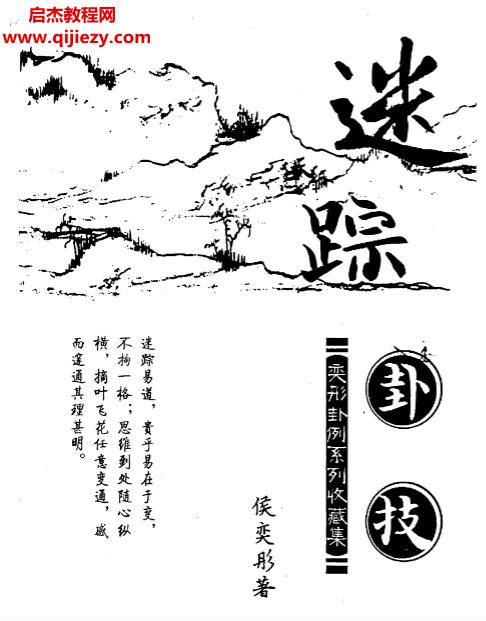 启杰教程网
www.qijiezy.com
迷
踪
卦
技
奕彤卦例系列收藏集
侯奕彤著
迷踪易道，貴乎易在于变，
不拘一格；思维到处随心纵
横，摘叶飞花任意变通，感
而遂通其理甚明。